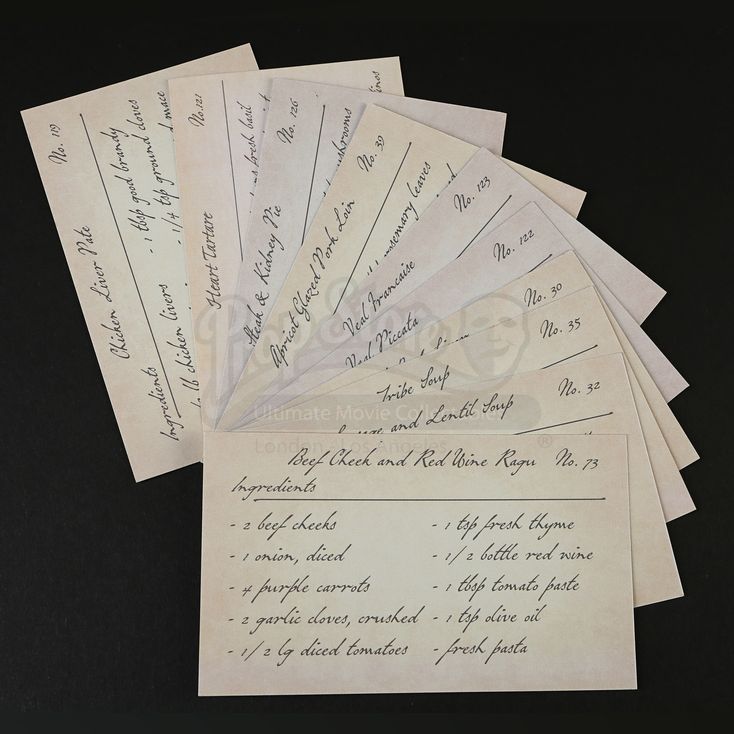 No. 119
Chicken Liver Pate
Ingredients
- 1 tbsp good brandy
lb chicken livers
- 1/4 tsp ground cloves
mace
No. 121
Heart Tartare
fresh basil
No. 126
Steak & Kidney Pie
No. 39
Apricot Glazed Pork Loin
rosemary leaves
No. 123
Veal Francaise
No. 122
Veal Piccata
No. 30
No. 35
Tribe Soup
No. 32
and Lentil Soup
Beef Cheek and Red Wine Ragu No. 73
Ingredients
- 2 beef cheeks - 1 tsp fresh thyme
- 1 onion, diced - 1/2 bottle red wine
- 4 purple carrots - 1 tbsp tomato paste
- 2 garlic cloves, crushed - 1 tsp olive oil
- 1/2 lg diced tomatoes - fresh pasta
Prop Store
Ultimate Movie Collectables
London - Los Angeles
®